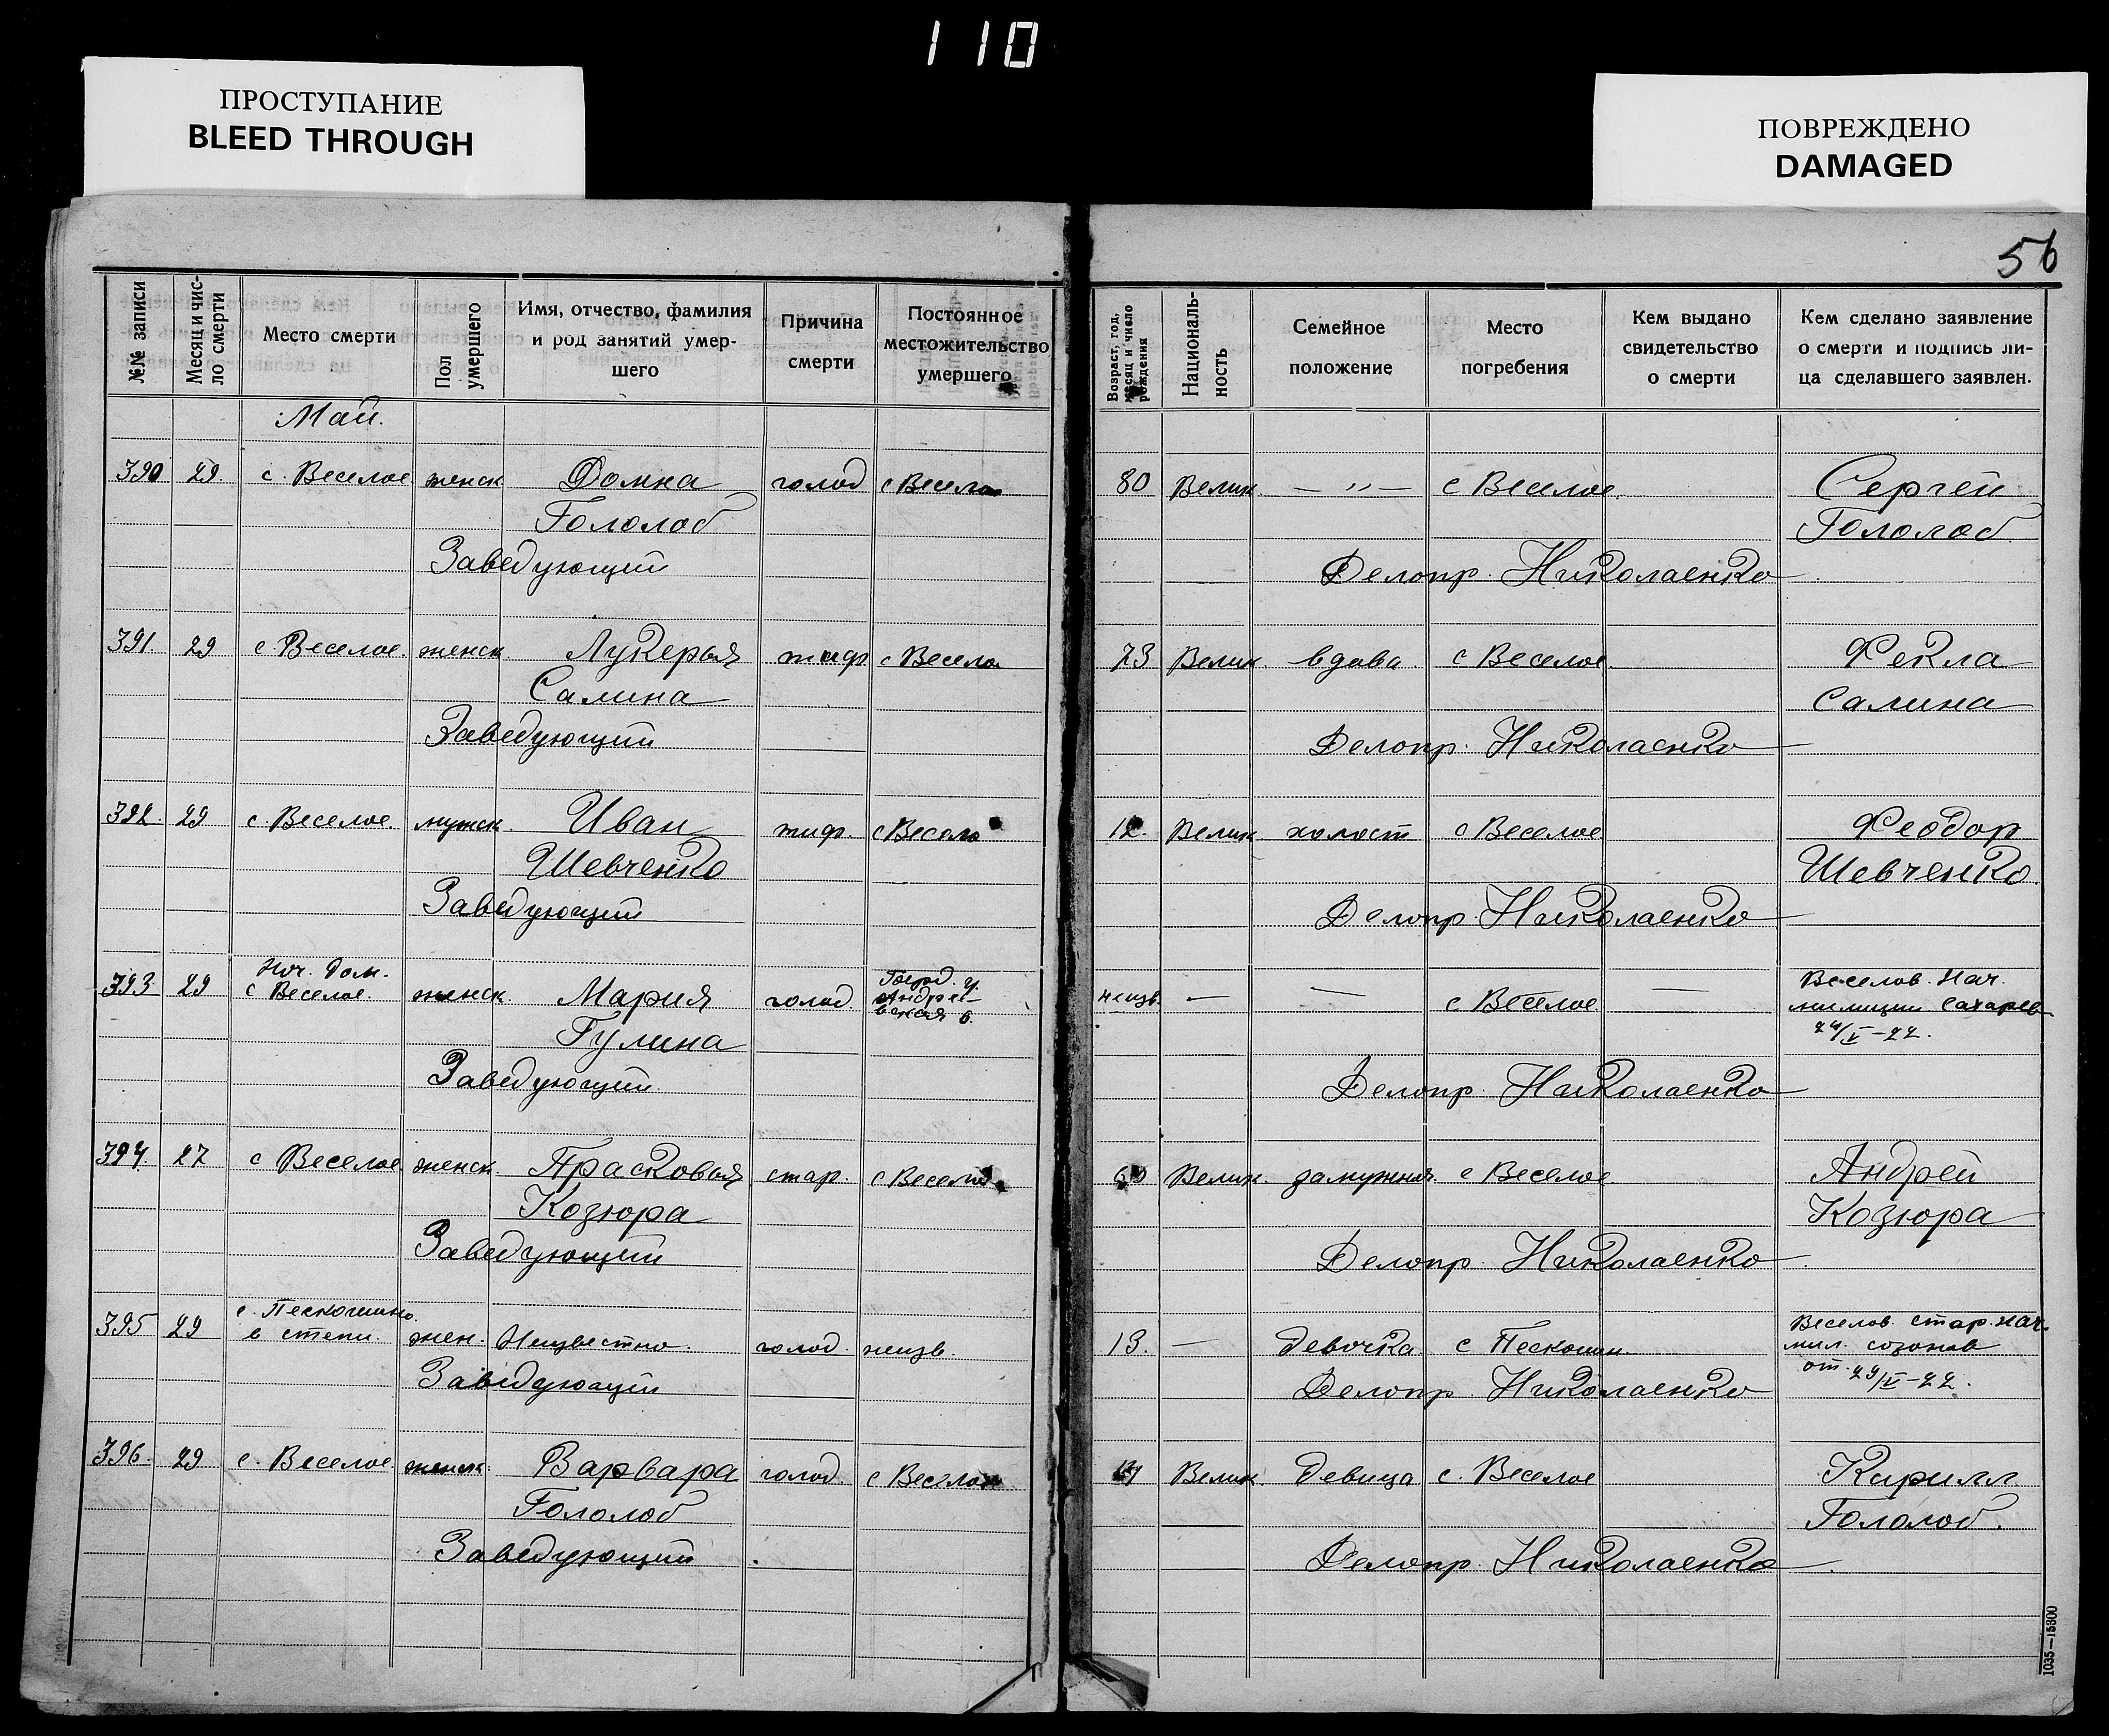 110
ПРОСТУПАНИЕ
BLEED THROUGH
ПОВРЕЖДЕНО
DAMAGED
56
№№ записи
Месяц и число смерти
Место смерти
Пол умершего
Имя, отчество, фамилия и род занятий умершего
Причина смерти
Постоянное местожительство умершего
Возраст, год, месяц и число рождения
Национальность
Семейное положение
Место погребения
Кем выдано свидетельство о смерти
Кем сделано заявление о смерти и подпись лица сделавшего заявлен.
Май.
390 29 с. Веселое женск Домна голод с Веселое 80 Велик — " — с Веселое. Сергей
Гололоб Гололоб.
Заведующий Делопр. Николаенко
391. 29 с. Веселое. женск. Лукерья тиф с Весело 73 Велик. вдова. с Веселое. Фекла
Салина Салина
Заведующий Делопр. Николаенко
392. 29 с. Веселое. мужск. Иван тиф. с Весело 12. Велик холост с Веселое. Феодор
Шевченко Шевченко.
Заведующий Делопр. Николаенко
393 29 Ноч. дом. с Веселое. женск. Мария голод. Берд. у. Андреевская в. неизв. — — с Веселое. — Веселов. Нач.
Гулина милиции Сахаров
24/V–22.
Заведующий. Делопр. Николаенко
394. 27 с Веселое женск. Прасковья стар. с Веселое 60 Велик. замужняя с Веселое. Андрей
Козюра Козюра
Заведующий Делопр. Николаенко
395 29 с. в степи. жен. Неизвестно. голод. неизв. 13. — Девочка. с Пескошин. Веселов. стар. нач.
мил.
от 29/V–22.
Заведующий Делопр. Николаенко
396. 29 с. Веселое женск. Варвара голод. с Веселое Велик. Девица с. Веселое Кирилл
Гололоб Гололоб.
Заведующий Делопр. Николаенко
1035—15300